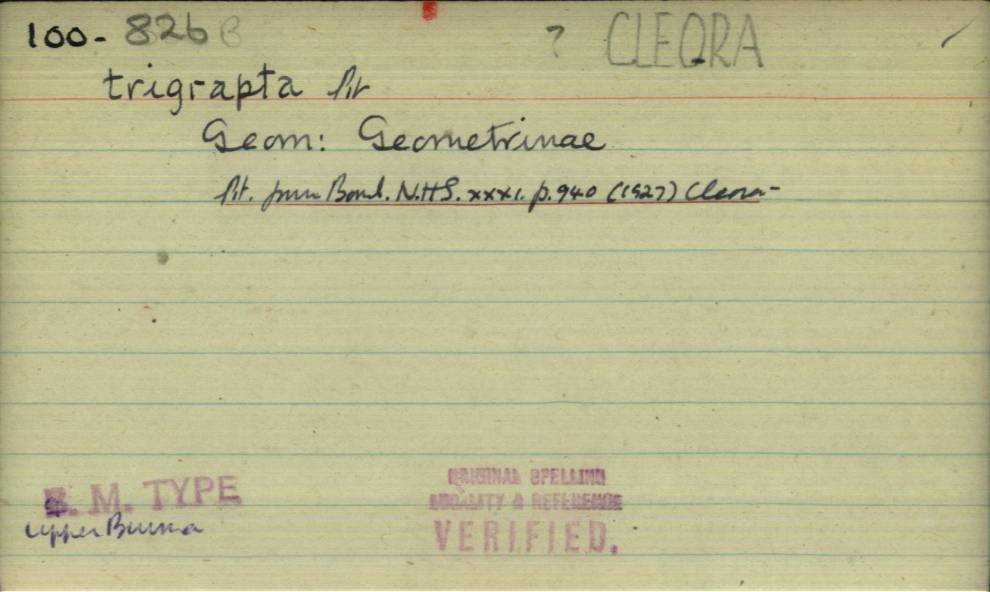 100- 826 B ? CLEORA
trigrapta Prt
Geom: Geometrinae
Prt. journ Bomb. N.H.S. xxxi. p.940 (1927) Cleora-
B. M. TYPE
Upper Burma
ORIGINAL SPELLING
LOCALITY & REFERENCE
VERIFIED.